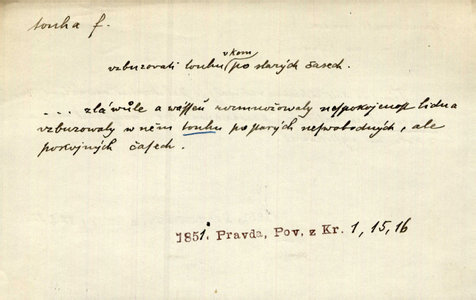 touha f.
vzbuzovati touhu v kom po starých časech.
... zlá wůle a wášeň rozmnožowaly nespokojenost lidu a
vzbuzowaly w něm touhu po starých neswobodných, ale
pokojných časech.
1851. Pravda, Pov. z Kr. 1, 15, 16